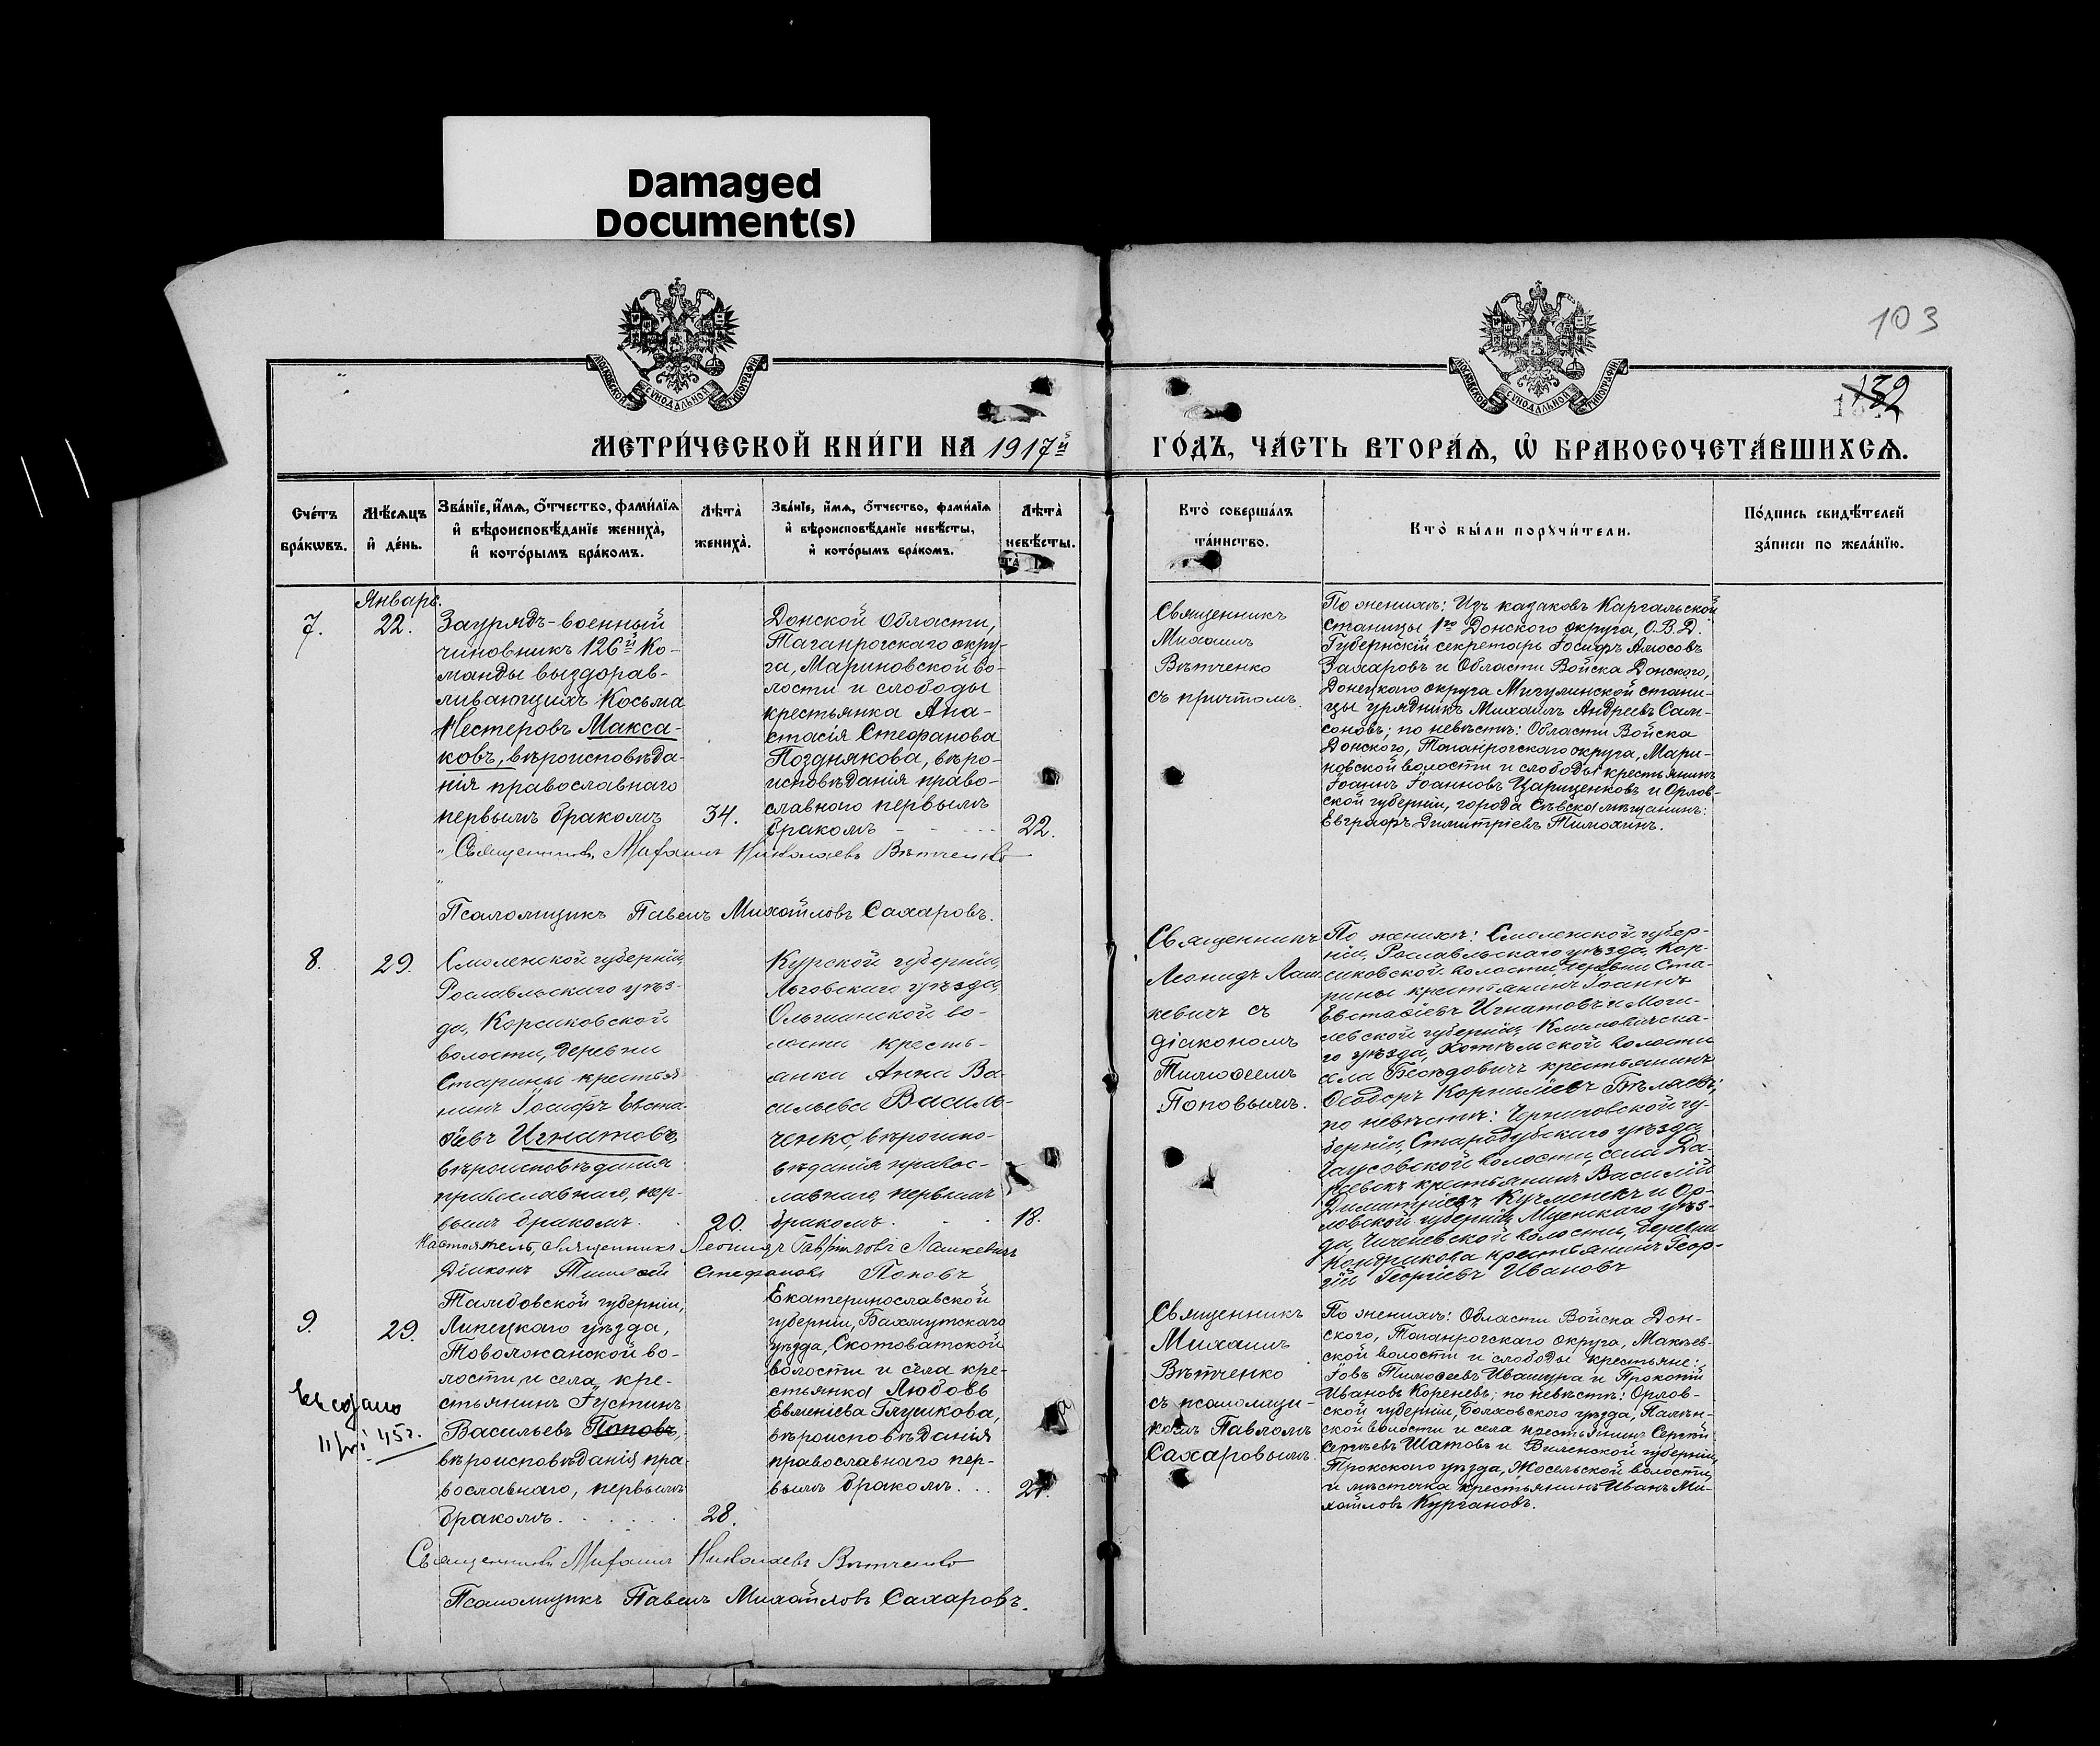 Damaged
Document(s)
103
132
МЕТРИ́ЧЕСКОЙ КНИ́ГИ НА 1917й
ГО́ДЪ, ЧА́СТЬ ВТОРА́Ѧ, Ѽ БРАКОСОЧЕТА́ВШИХСѦ.
Сче́тъ бра́кѡвъ.
Мѣсѧцъ и҆ де́нь.
Зва́нїе, и҆́мѧ, ѻ҆́тчество, фами́лїѧ
и҆ вѣроисповѣ́данїе жениха̀,
и҆ кото́рымъ бра́комъ.
Лѣта̀ жениха̀.
Зва́нїе, и҆́мѧ, ѻ҆́тчество, фами́лїѧ
и҆ вѣроисповѣ́данїе невѣ́сты,
и҆ кото́рымъ бра́комъ.
Лѣта̀ невѣ́сты.
Кто̀ соверша́лъ
та́инство.
Кто̀ бы́ли порꙋчи́тели.
По́дпись свидѣ́телей
за́писи по жела́нїю.
7.
Январь.
22.
Заурядъ-военный
чиновникъ 126й Ко-
манды выздорав-
ливающихъ Косьма
Нестеровъ Макса-
ковъ, вѣроисповѣда-
нія православнаго
первымъ бракомъ
34.
Донской области,
Таганрогскаго окру-
га, Мариновской во-
лости и слободы
крестьянка Ана-
стасія Стефанова
Позднякова, вѣро-
исповѣданія право-
славнаго первымъ
бракомъ
22.
Священникъ
Михаилъ
Вѣтченко
съ причтомъ.
По женихѣ: Изъ казаковъ Каргальской
станицы 1го Донского округа, О.В.Д.
Губернскій секретарь Іосифъ Амосовъ
Захаровъ и Области Войска Донского,
Донецкаго округа Мигулинской стани-
цы урядникъ Михаилъ Андреевъ Сам-
соновъ; по невѣстѣ: Области Войска
Донского, Таганрогскаго округа, Мари-
новской волости и слободы крестьянинъ
Іоаннъ Іоанновъ Царищенковъ и Орлов-
ской губерніи, города Сѣвска мѣщанинъ:
Евграфъ Димитріевъ Тимохинъ.
Священникъ Михаилъ Николаевъ Вѣтченко
Псаломщикъ Павелъ Михайловъ Сахаровъ.
8.
29.
Смоленской губерніи,
Рославльскаго уѣз-
да, Корсиковской
волости, деревни
Старины крестья-
нинъ Іосифъ Евста-
фіевъ Игнатовъ,
вѣроисповѣданія
православнаго, пер-
вымъ бракомъ.
20.
Курской губерніи,
Льговскаго уѣзда,
Ольшанской во-
лости кресть-
янка Анна Ва-
сильева Василь-
ченко, вѣроиспо-
вѣданія правос-
лавнаго, первымъ
бракомъ.
18.
Священникъ
Леонидъ Лаш-
кевичъ съ
діакономъ
Тимофеемъ
Поповымъ.
По женихѣ: Смоленской губер-
ніи, Рославльскаго уѣзда, Кор-
сиковской волости, деревни Ста-
рины крестьянинъ Іоаннъ
Евстафіевъ Игнатовъ и Моги-
левской губерніи, Климовичска-
го уѣзда, Хотѣмской волости
села Бесѣдовичъ крестьянинъ
Ѳеодоръ Корниліевъ Бѣляевъ;
по невѣстѣ: Черниговской гу-
берніи, Стародубскаго уѣзда,
волости, села
крестьянинъ Василій
Димитріевъ Кузменекъ и Ор-
ловской губерніи, Мценскаго уѣз-
да, волости, деревни
крестьянинъ Геор-
гій Георгіевъ Ивановъ
Настоятель, священникъ Леонидъ Гавріиловъ Лашкевичъ
Діаконъ Тимофей Стефановъ Поповъ
9.
29.
Тамбовской губерніи,
Липецкаго уѣзда,
Товолжанской во-
лости и села, кре-
стьянинъ Іустинъ
Васильевъ Поповъ,
вѣроисповѣданія пра-
вославнаго, первымъ
бракомъ.
28.
Екатеринославской
губерніи, Бахмутскаго
уѣзда, Скотоватской
волости и села кре-
стьянка Любовь
Евменіева Глушкова,
вѣроисповѣданія
православнаго пер-
вымъ бракомъ.
21.
Священникъ
Михаилъ
Вѣтченко
съ псаломщи-
комъ Павломъ
Сахаровымъ.
По женихѣ: Области Войска Дон-
ского, Таганрогскаго округа, Макѣев-
ской волости и слободы крестьяне:
Іовъ Тимофеевъ Ивашура и Прокопій
Ивановъ Кореневъ; по невѣстѣ: Орлов-
ской губерніи, Болховскаго уѣзда,
ской волости и села крестьянинъ Сергѣй
Сергѣевъ Шатовъ и Виленской губерніи,
Трокскаго уѣзда, Жосельской волости,
и мѣстечка крестьянинъ Иванъ Ми-
хайловъ Кургановъ.
45г.
Священникъ Михаилъ Николаевъ Вѣтченко
Псаломщикъ Павелъ Михайловъ Сахаровъ.